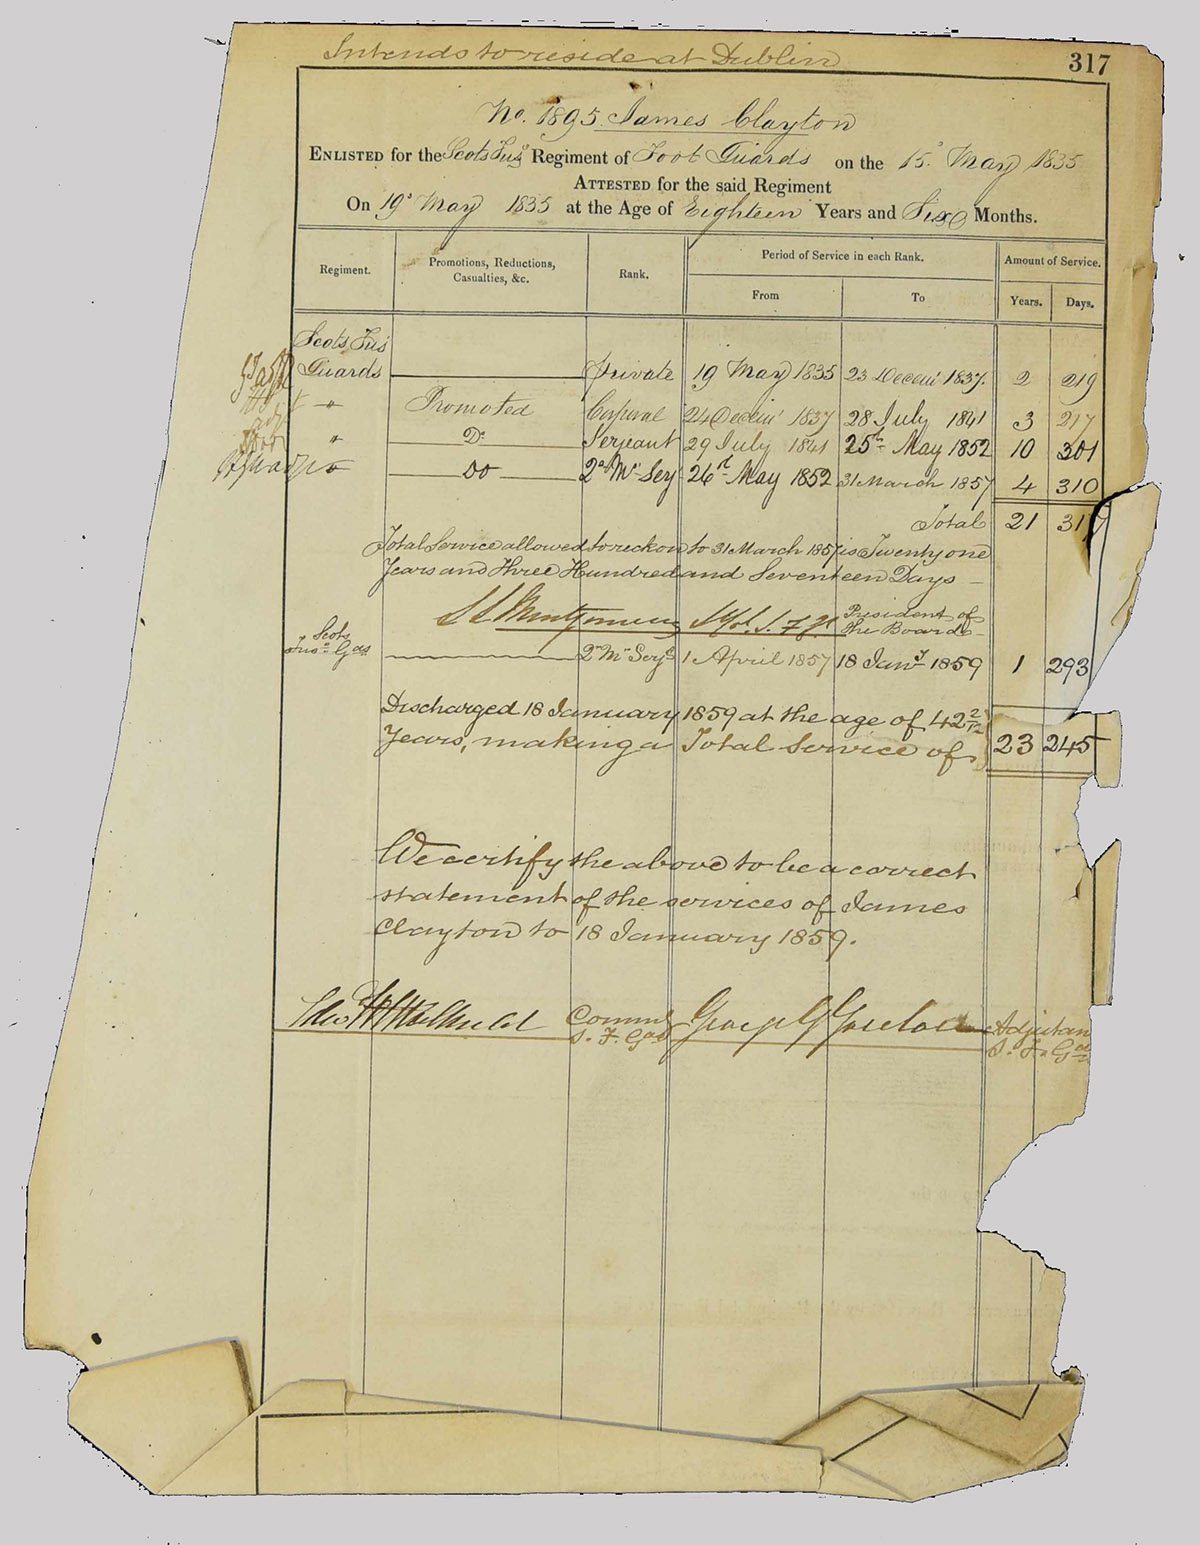 Intends to reside at Dublin
317
No. 1895. James Clayton
ENLISTED for the Scots Fus Regiment of Foot Guards on the 15 May 1835
ATTESTED for the said Regiment
On 19 May 1835 at the Age of Eighteen Years and Six Months.
Regiment. Promotions, Reductions, Casualties, &c. Rank. Period of Service in each Rank. Amount of Service.
From To Years. Days.
Scots Fus
Guards Private 19 May 1835 23 Decem 1837. 2 219
" Promoted Corporal 24 Decem 1837 28 July 1841 3 217
" Do Serjeant 29 July 1841 25th May 1852 10 301
Do 2d Mr Serj 26 May 1852 31 March 1857 4 310
Total 21 317
Total Service allowed to reckon to 31 March 1857 is Twenty one
Years and Three Hundred and Seventeen Days
Montgomery President of
the Board
Scots
Fusr Gds 2 Mr Serj 1 April 1857 18 Jany 1859 1 293
Discharged 18 January 1859 at the age of 42 2/12
Years, making a Total Service of 23 245
We certify the above to be a correct
statement of the services of James
Clayton to 18 January 1859.
Comm Adjutan
S. F. Gds S. F. Gds